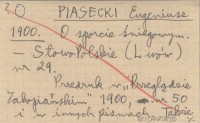 20 PIASECKI Eugeniusz
1900. O sporcie śniegowym.
— Słowo Polskie (Lwów)
nr 29.
Przedruk w „Przeglądzie
Zakopiańskim" 1900, nr 50
i w innych pismach